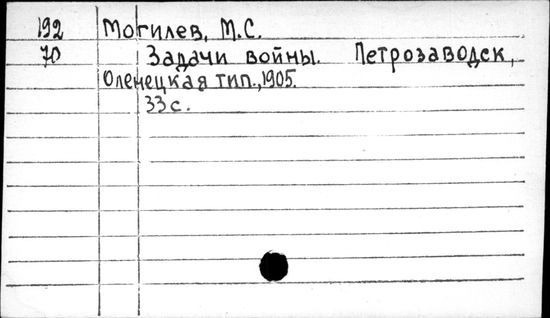 192 Могилев, М.С.
70 Задачи войны. Петрозаводск,
Оленецкая тип.,1905.
33 с.